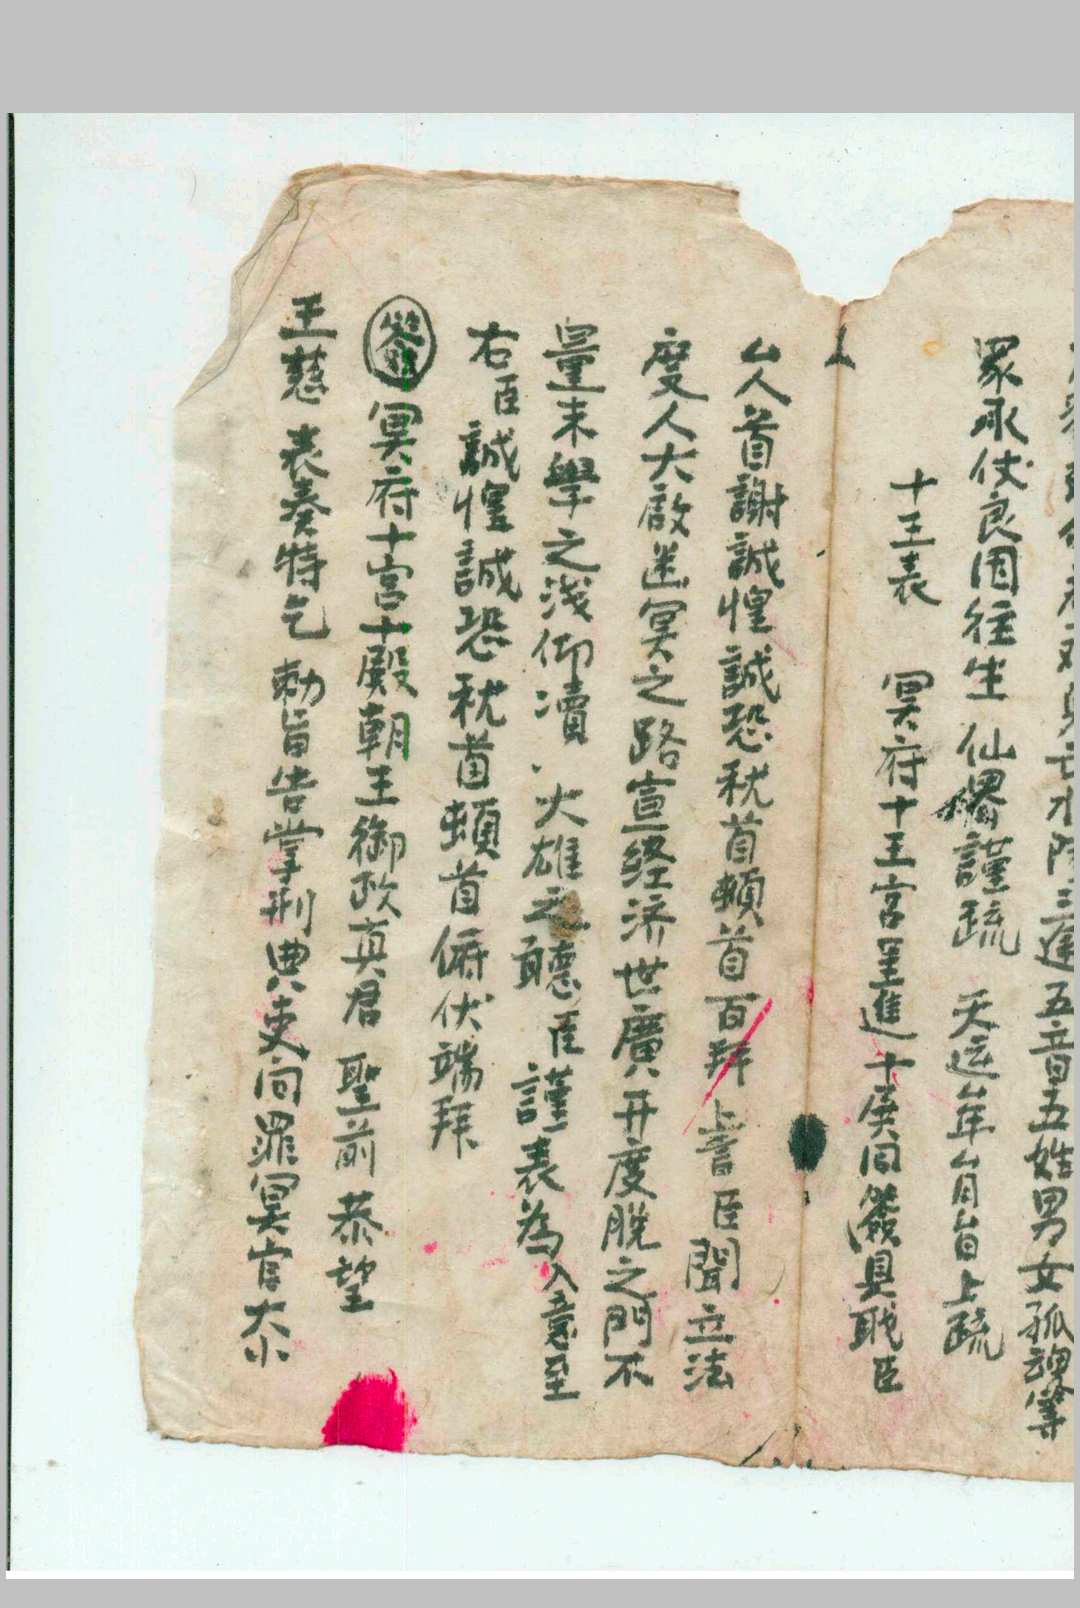 五音五姓男女孤魂等
眾承仗良因往生 仙界謹疏 天运厶年厶月厶日上疏
十王表 冥府十王宮呈進十殿同籤具职臣
厶人首謝誠惶誠恐稽首頓首百拜上言臣聞立法
度人大啟迷冥之路宣经济世廣开度脱之門不
量末學之浅仰瀆 大雄之聽臣謹表為入意至
右臣誠惶誠恐稽首頓首俯伏端拜
冥府十宮十殿朝王御政真君 聖前恭望
王慈 表奏特乞 勅旨告掌刑典吏问罪冥官大小